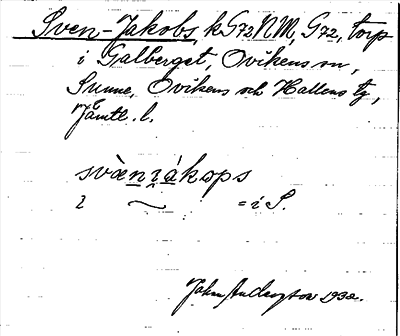 Sven-Jakobs, k G72 N.M. G72, torp
i Galberget, Ovikens sn,
Sunne, Ovikens och Hallens tg,
Jämtl. l.
svæ̀nɪ̯ákops
i ~ = i S.
1932.